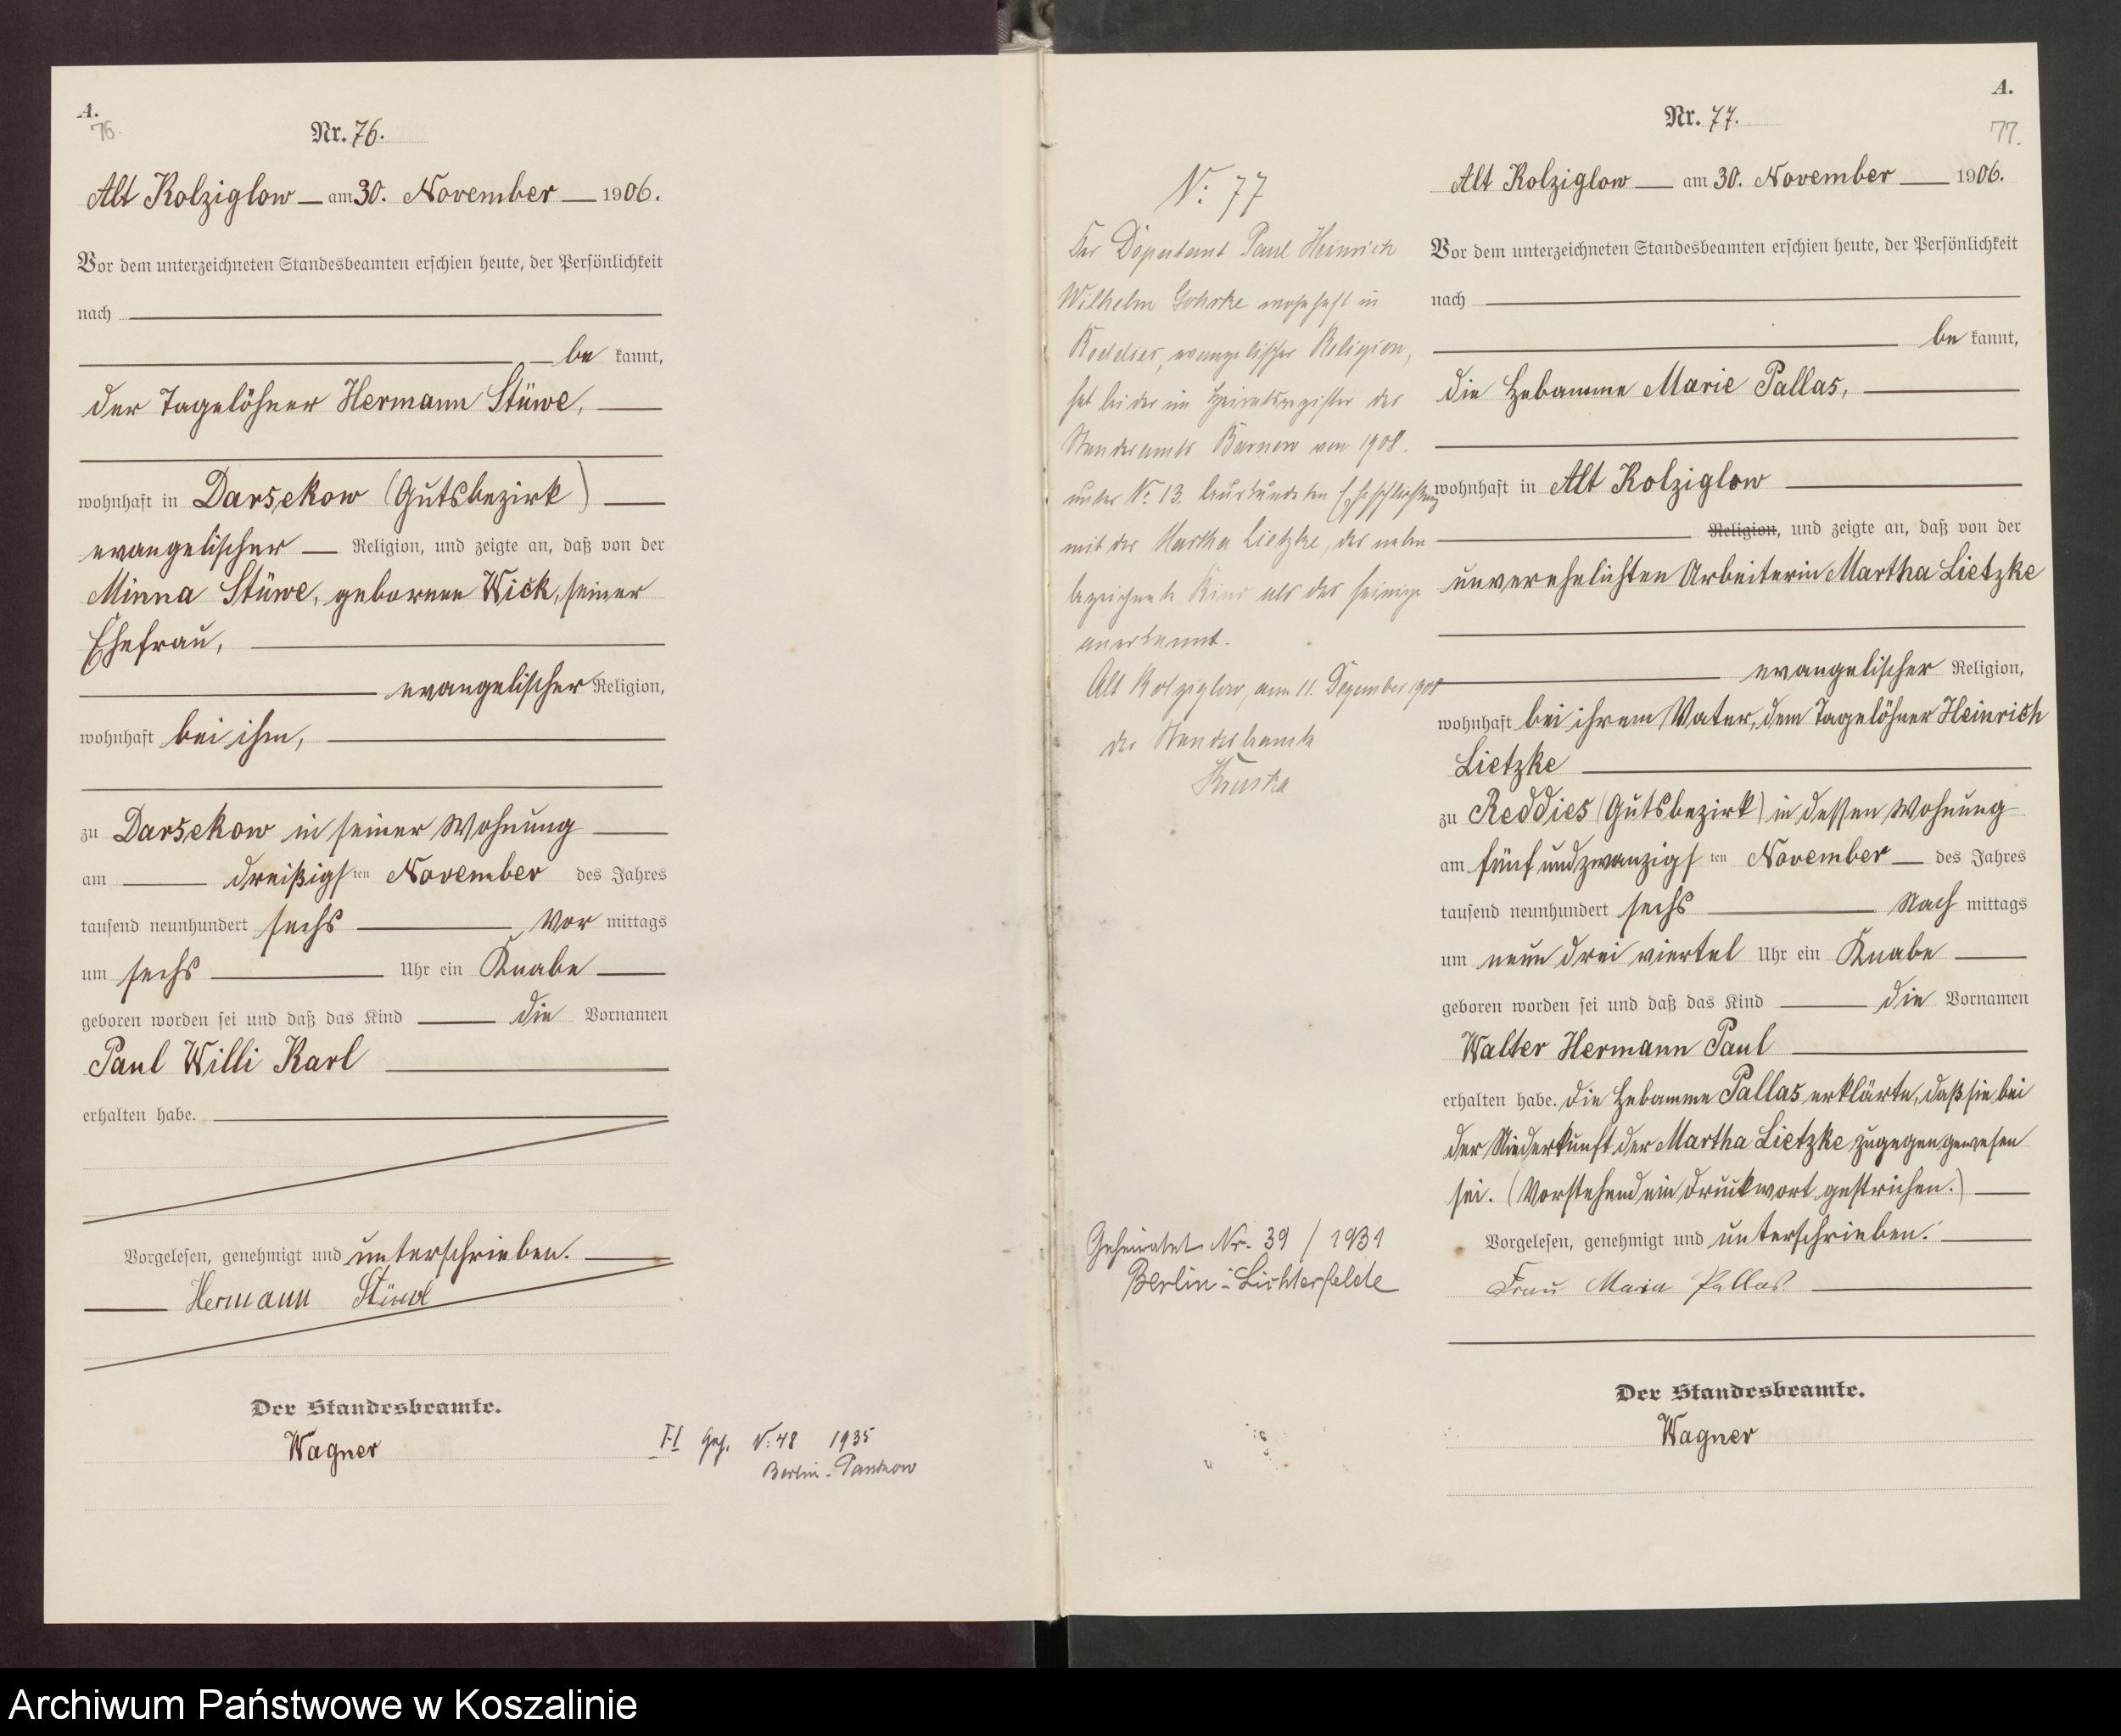 A.
76.
Nr. 76.
Alt Kolziglow am 30. November 1906.
Vor dem unterzeichneten Standesbeamten erschien heute, der Persönlichkeit
nach
be kannt,
der Tagelöhner Hermann Stüwe,
wohnhaft in Darsekow (Gutsbezirk)
evangelischer Religion, und zeigte an, daß von der
Minna Stüwe, geborenen Wick, seiner
Ehefrau,
evangelischer Religion,
wohnhaft bei ihm,
zu Darsekow in seiner Wohnung
am dreißigsten November des Jahres
tausend neunhundert sechs Vor mittags
um sechs Uhr ein Knabe
geboren worden sei und daß das Kind die Vornamen
Paul Willi Karl
erhalten habe.
Vorgelesen, genehmigt und unterschrieben.
Hermann Stüwe
Der Standesbeamte.
Wagner
Geh. N: 48 1935
Berlin-Pankow
N: 77
Der Deputant Paul Heinrich
Wilhelm Gohrke wohnhaft in
Reddies, evangelischer Religion,
hat bei der im Heiratsregister des
Standesamts Barnow von 1908.
unter N: 13. beurkundeten Eheschließung
mit der Martha Lietzke, das neben
bezeichnete Kind als das seinige
anerkannt.
Alt Kolziglow, am 11. Dezember 1908
der Standesbeamte
Geheiratet Nr. 39 / 1931
Berlin-Lichterfelde
A.
77.
Nr. 77.
Alt Kolziglow am 30. November 1906.
Vor dem unterzeichneten Standesbeamten erschien heute, der Persönlichkeit
nach
be kannt,
die Hebamme Marie Pallas,
wohnhaft in Alt Kolziglow
Religion, und zeigte an, daß von der
unverehelichten Arbeiterin Martha Lietzke
evangelischer Religion,
wohnhaft bei ihrem Vater, dem Tagelöhner Heinrich
Lietzke
zu Reddies (Gutsbezirk) in dessen Wohnung
am fünfundzwanzigsten November des Jahres
tausend neunhundert sechs Nach mittags
um neun drei viertel Uhr ein Knabe
geboren worden sei und daß das Kind die Vornamen
Walter Hermann Paul
erhalten habe. Die Hebamme Pallas erklärte, daß sie bei
der Niederkunft der Martha Lietzke zugegen gewesen
sei. (Vorstehend ein Druckwort gestrichen.)
Vorgelesen, genehmigt und unterschrieben.
Frau Maria Pallas.
Der Standesbeamte.
Wagner
Archiwum Państwowe w Koszalinie